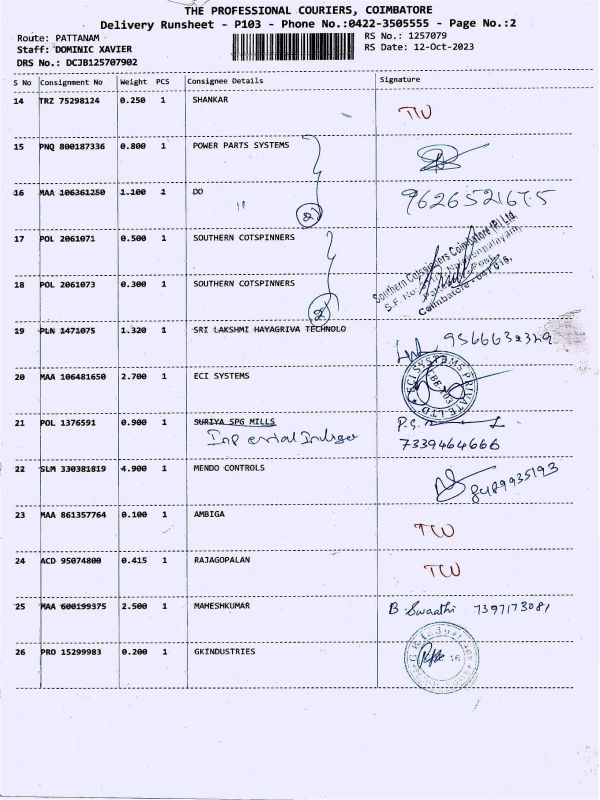 THE PROFESSIONAL COURIERS, COIMBATORE
Delivery Runsheet - P103 - Phone No.:0422-3505555 - Page No.:2
Route: PATTANAM RS No.: 1257079
Staff: DOMINIC XAVIER RS Date: 12-Oct-2023
DRS No.: DCJB125707902
S No Consignment No Weight PCS Consignee Details Signature
14 TRZ 75298124 0.250 1 SHANKAR
15 PNQ 800187336 0.800 1 POWER PARTS SYSTEMS
16 MAA 106361250 1.100 1 DO 9626521675
2
17 POL 2061071 0.500 1 SOUTHERN COTSPINNERS
Southern Cotspinners Coimbatore (P) Ltd.
18 POL 2061073 0.300 1 SOUTHERN COTSPINNERS
2
19 PLN 1471075 1.320 1 SRI LAKSHMI HAYAGRIVA TECHNOLO 9566632349
20 MAA 106481650 2.700 1 ECI SYSTEMS
ECI SYSTEMS PRIVATE LTD
21 POL 1376591 0.900 1 SURIYA SPG MILLS P.S.
7339464666
22 SLM 330381819 4.900 1 MENDO CONTROLS 8489935193
23 MAA 861357764 0.100 1 AMBIGA TCW
24 ACD 95074800 0.415 1 RAJAGOPALAN TCW
25 MAA 600199375 2.500 1 MAHESHKUMAR B. Swaathi 7397173081
26 PRO 15299983 0.200 1 GKINDUSTRIES